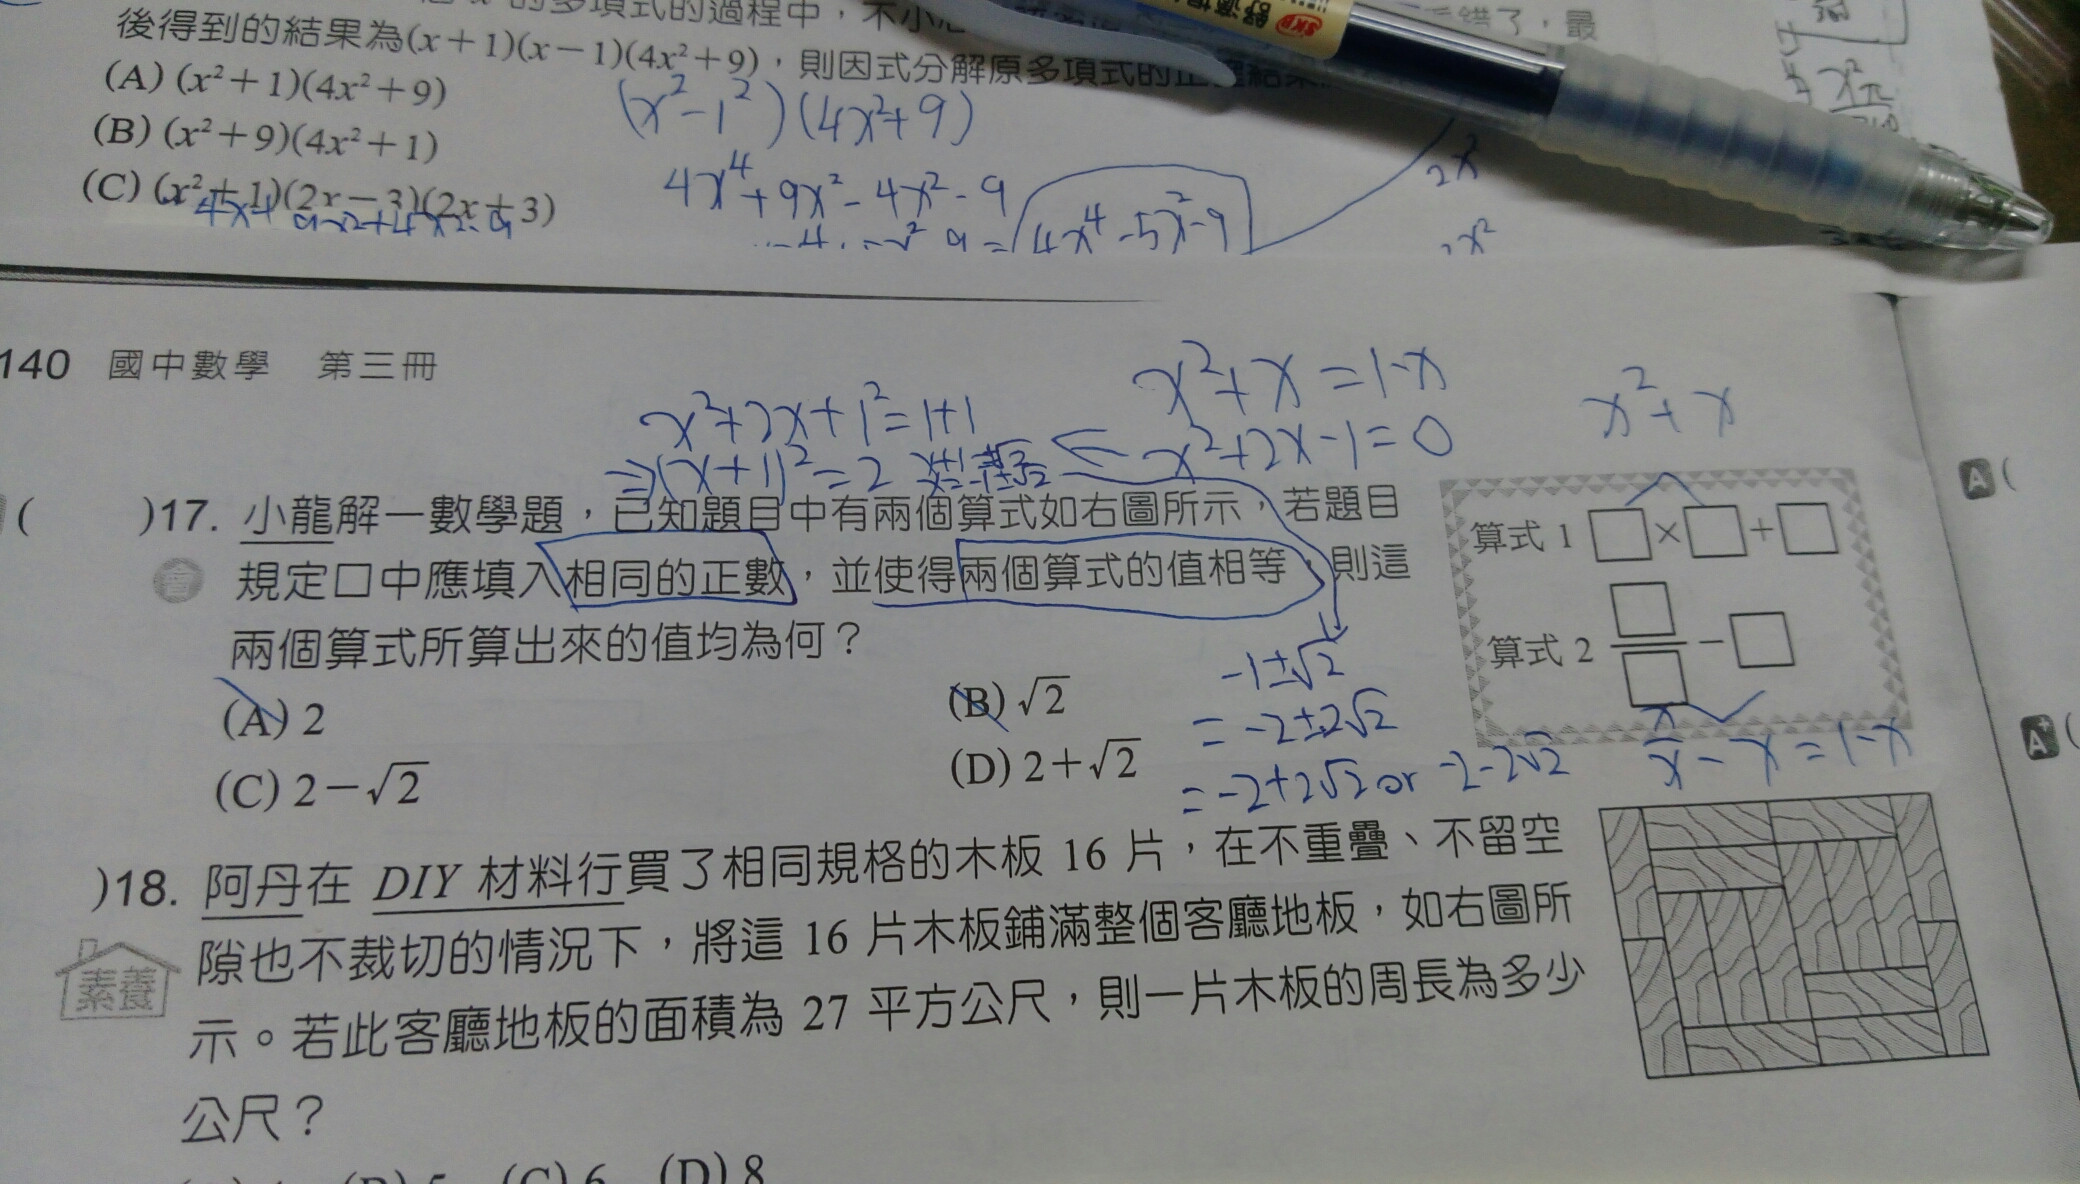 的多項式的過程中，不小
錯了，最
後得到的結果為(x+1)(x−1)(4x²+9)，則因式分解原多項式的正
(A) (x²+1)(4x²+9)
(x²-1²)(4x²+9)
(B) (x²+9)(4x²+1)
4x⁴+9x²-4x²-9
(C) (x²+1)(2x−3)(2x+3)
4x⁴-5x²-9
2x²
140 國中數學 第三冊
x²+2x+1²=1+1
x²+x=1-x
x²+x
⇒(x+1)²=2 x+1=±√2
x=-1±√2
← x²+2x-1=0
( )17. 小龍解一數學題，已知題目中有兩個算式如右圖所示，若題目
規定□中應填入相同的正數，並使得兩個算式的值相等，則這
兩個算式所算出來的值均為何？
(A) 2
(B) √2
(C) 2−√2
(D) 2+√2
算式 1 □×□+□
算式 2 □/□−□
-1±√2
=-2±2√2
=-2+2√2 or -2-2√2
x/x-x=1-x
A (
A⁺ (
)18. 阿丹在 DIY 材料行買了相同規格的木板 16 片，在不重疊、不留空
素養
隙也不裁切的情況下，將這 16 片木板鋪滿整個客廳地板，如右圖所
示。若此客廳地板的面積為 27 平方公尺，則一片木板的周長為多少
公尺？
(C) 6 (D) 8